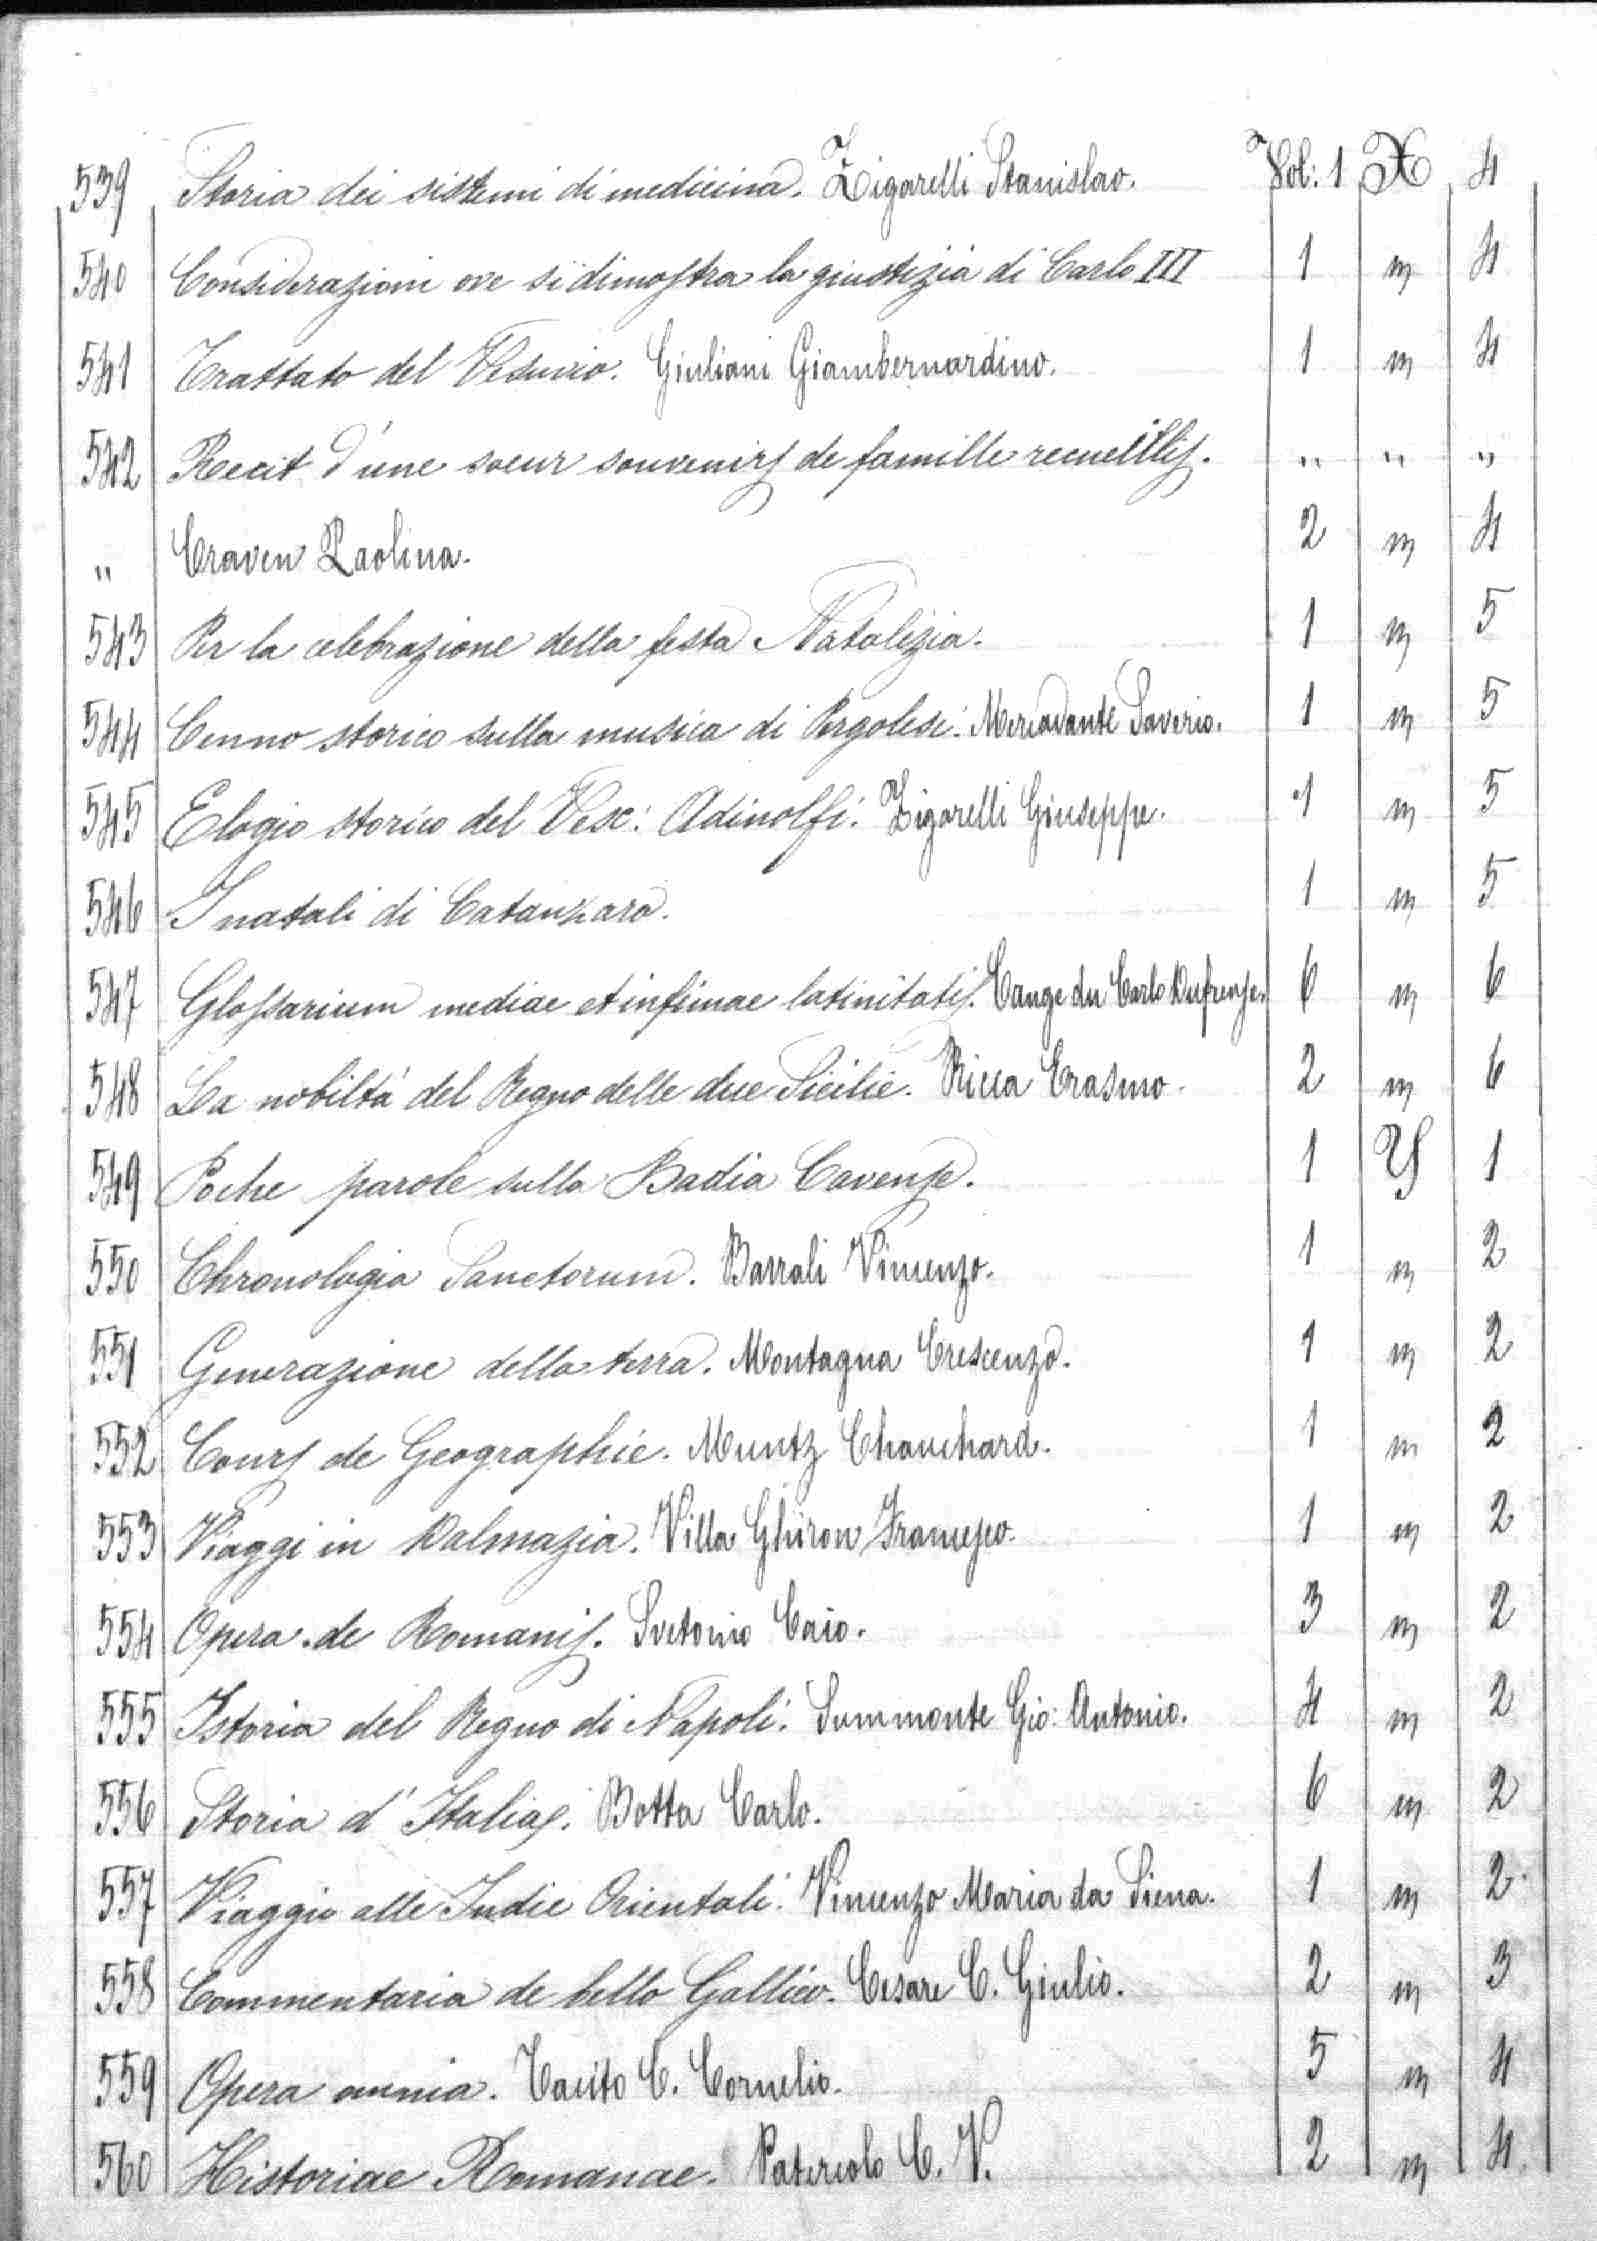 539 Storia dei sistemi di medicina. Zigarelli Stanislao. Vol: 1 X 4
540 Considerazioni ove si dimostra la giustizia di Carlo III 1 m 4
541 Trattato del Vesuvio. Giuliani Giambernardino. 1 m 4
542 Recit d'une soeur souvenirs de famille recueillis. " " "
" Craven Paolina. 2 m 4
543 Per la celebrazione della festa Natalizia. 1 m 5
544 Cenno storico sulla musica di Pergolesi. Mercadante Saverio. 1 m 5
545 Elogio storico del Vesc: Adinolfi. Zigarelli Giuseppe. 1 m 5
546 I natali di Catanzaro. 1 m 5
547 Glossarium mediae et infimae latinitatis. Cange du Carlo Dufrense. 6 m 6
548 La nobiltà del Regno delle due Sicilie. Ricca Erasmo. 2 m 6
549 Poche parole sulla Badia Cavense. 1 Y 1
550 Chronologia Sanctorum. Barrali Vincenzo. 1 m 2
551 Generazione della terra. Montagna Crescenzo. 1 m 2
552 Cours de Geographie. Muntz Chauchard. 1 m 2
553 Viaggi in Dalmazia. Villa Ghiron Francesco. 1 m 2
554 Opera de Romanis. Svetonio Caio. 3 m 2
555 Istoria del Regno di Napoli. Summonte Gio: Antonio. 4 m 2
556 Storia d'Italia. Botta Carlo. 6 m 2
557 Viaggio alle Indie Orientali. Vincenzo Maria da Siena. 1 m 2
558 Commentaria de bello Gallico. Cesare C. Giulio. 2 m 3
559 Opera omnia. Tacito C. Cornelio. 5 m 4
560 Historiae Romanae. Patercolo C. V. 2 m 4